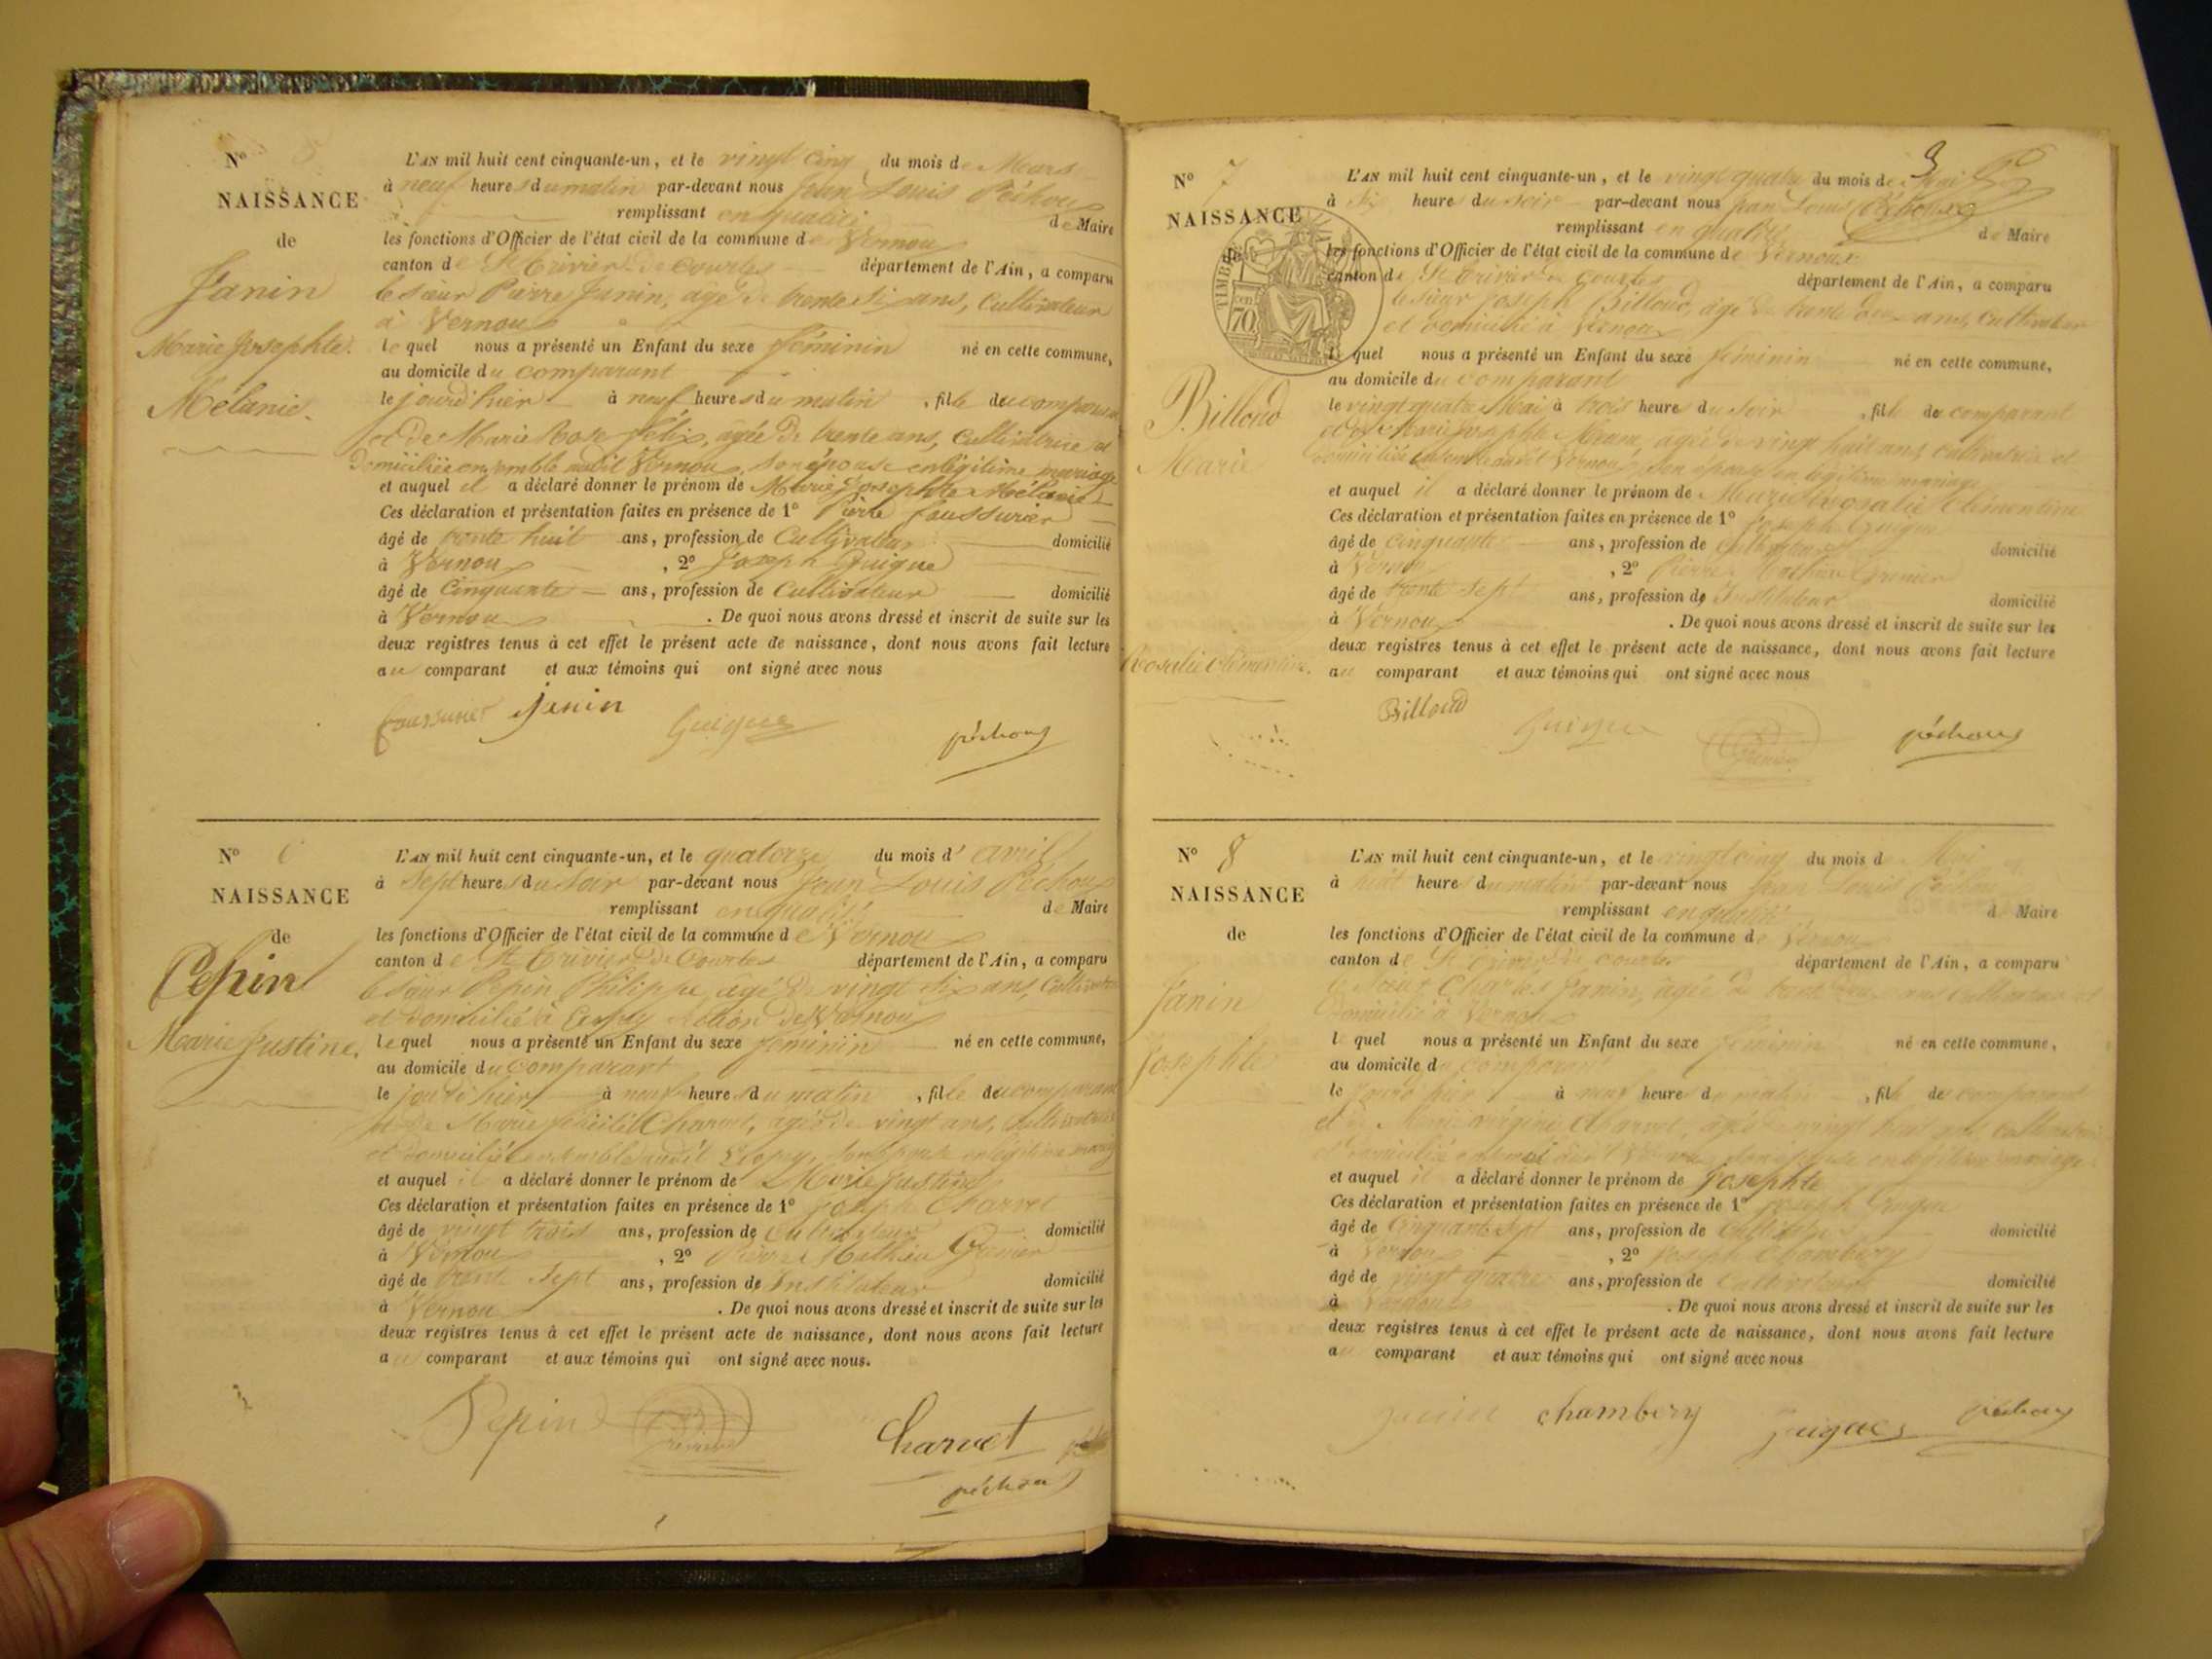 N° 5
NAISSANCE
de
Janin
Marie Josephte
Mélanie.
L'AN mil huit cent cinquante-un, et le vingt cinq du mois de Mars
à neuf heures du matin par-devant nous Jean Louis Péchoux
remplissant en qualité de Maire
les fonctions d'Officier de l'état civil de la commune de Vernoux
canton de St Trivier de Courtes département de l'Ain, a comparu
le sieur Pierre Janin, âgé de trente six ans, Cultivateur
à Vernoux
lequel nous a présenté un Enfant du sexe féminin né en cette commune,
au domicile du comparant
le jourd'hier à neuf heures du matin, fille du comparant
et de Marie Rose Félix, âgée de trente ans, Cultivatrice et
domiciliée ensemble audit Vernoux, son épouse en légitime mariage
et auquel il a déclaré donner le prénom de Marie Josephte Mélanie
Ces déclaration et présentation faites en présence de 1° Pierre Faussurier
âgé de trente huit ans, profession de Cultivateur domicilié
à Vernoux, 2° Joseph Guigue
âgé de Cinquante ans, profession de Cultivateur domicilié
à Vernoux. De quoi nous avons dressé et inscrit de suite sur les
deux registres tenus à cet effet le présent acte de naissance, dont nous avons fait lecture
au comparant et aux témoins qui ont signé avec nous
Janin Guigue péchoux
N° 6
NAISSANCE
de
Pepin
Marie Justine.
L'AN mil huit cent cinquante-un, et le quatorze du mois d'avril
à Sept heures du Soir par-devant nous Jean Louis Péchoux
remplissant en qualité de Maire
les fonctions d'Officier de l'état civil de la commune de Vernoux
canton de St Trivier de Courtes département de l'Ain, a comparu
le sieur Pepin Philippe, âgé de vingt six ans, Cultivateur
et domicilié à de Vernoux
lequel nous a présenté un Enfant du sexe féminin né en cette commune,
au domicile du comparant
le jour d'hier à neuf heures du matin, fille du comparant
et de Marie Charvet, âgée de vingt ans, Cultivatrice
et domiciliée ensemble audit son épouse en légitime mariage
et auquel il a déclaré donner le prénom de Marie Justine
Ces déclaration et présentation faites en présence de 1° Joseph Charvet
âgé de vingt trois ans, profession de Cultivateur domicilié
à Vernoux, 2° Pierre Mathieu Grenier
âgé de trente Sept ans, profession de Instituteur domicilié
à Vernoux. De quoi nous avons dressé et inscrit de suite sur les
deux registres tenus à cet effet le présent acte de naissance, dont nous avons fait lecture
au comparant et aux témoins qui ont signé avec nous.
Pepin Charvet
péchoux
3
N° 7
NAISSANCE
de
TIMBRE
70
Billoud
Marie
Rosalie Clémentine.
L'AN mil huit cent cinquante-un, et le vingt quatre du mois de Mai
à Six heures du soir par-devant nous Jean Louis Péchoux
remplissant en qualité de Maire
les fonctions d'Officier de l'état civil de la commune de Vernoux
canton de St Trivier de Courtes département de l'Ain, a comparu
le sieur Joseph Billoud, âgé de trente deux ans, Cultivateur
et domicilié à Vernoux
lequel nous a présenté un Enfant du sexe féminin né en cette commune,
au domicile du comparant
le vingt quatre Mai à trois heures du soir, fille du comparant
et de Marie Josephte âgée de vingt huit ans, cultivatrice et
domiciliée ensemble audit Vernoux, son épouse en légitime mariage
et auquel il a déclaré donner le prénom de Marie Rosalie Clémentine
Ces déclaration et présentation faites en présence de 1° Joseph Guigue
âgé de cinquante ans, profession de Cultivateur domicilié
à Vernoux, 2° Pierre Mathieu Grenier
âgé de trente sept ans, profession de Instituteur domicilié
à Vernoux. De quoi nous avons dressé et inscrit de suite sur les
deux registres tenus à cet effet le présent acte de naissance, dont nous avons fait lecture
au comparant et aux témoins qui ont signé avec nous
Billoud Guigue Grenier péchoux
N° 8
NAISSANCE
de
Janin
Josephte
L'AN mil huit cent cinquante-un, et le vingt cinq du mois de Mai
à huit heures du matin par-devant nous Jean Louis Péchoux
remplissant en qualité de Maire
les fonctions d'Officier de l'état civil de la commune de Vernoux
canton de St Trivier de Courtes département de l'Ain, a comparu
le Sieur Charles Janin, âgé de ans cultivateur et
domicilié à Vernoux
lequel nous a présenté un Enfant du sexe féminin né en cette commune,
au domicile du comparant
le jourd'hier à neuf heures du matin, fille du comparant
et de Marie Charvet, âgée de vingt huit ans, cultivatrice
et domiciliée ensemble audit Vernoux, son épouse en légitime mariage
et auquel il a déclaré donner le prénom de Josephte
Ces déclaration et présentation faites en présence de 1° Joseph
âgé de Cinquante Sept ans, profession de Cultivateur domicilié
à Vernoux, 2° Joseph Chambery
âgé de vingt quatre ans, profession de Cultivateur domicilié
à Vernoux. De quoi nous avons dressé et inscrit de suite sur les
deux registres tenus à cet effet le présent acte de naissance, dont nous avons fait lecture
au comparant et aux témoins qui ont signé avec nous
Janin chambery guigue péchoux